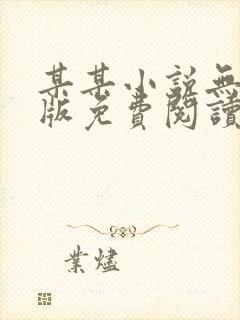 某某小說無
版免費閱讀
業燼